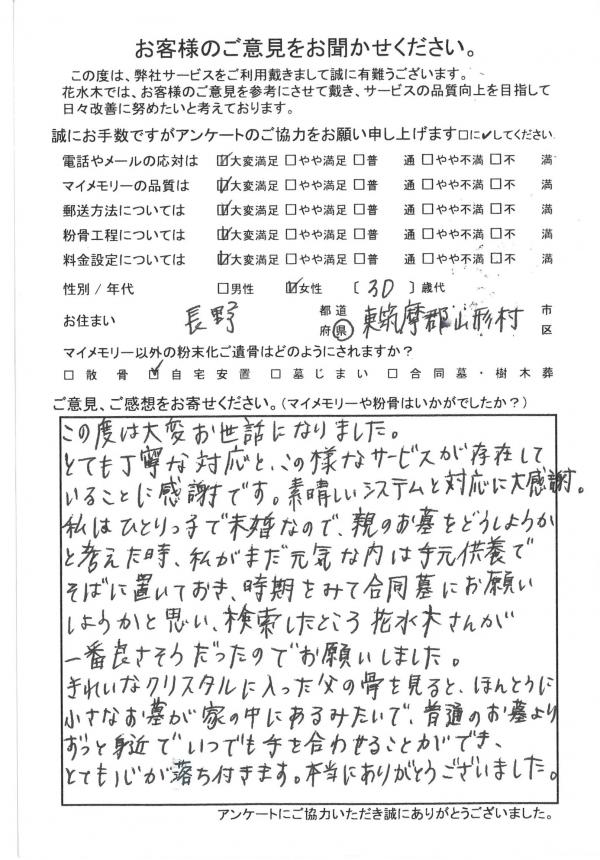 お客様のご意見をお聞かせください。
この度は、弊社サービスをご利用戴きまして誠に有難うございます。
花水木では、お客様のご意見を参考にさせて戴き、サービスの品質向上を目指して
日々改善に努めたいと考えております。
誠にお手数ですがアンケートのご協力をお願い申し上げます□に✔してください.
電話やメールの応対は ☑大変満足 □やや満足 □普 通 □やや不満 □不 満
マイメモリーの品質は ☑大変満足 □やや満足 □普 通 □やや不満 □不 満
郵送方法については ☑大変満足 □やや満足 □普 通 □やや不満 □不 満
粉骨工程については ☑大変満足 □やや満足 □普 通 □やや不満 □不 満
料金設定については ☑大変満足 □やや満足 □普 通 □やや不満 □不 満
性別/年代 □男性 ☑女性 〔 30 〕歳代
お住まい 長野 都 道 府 県 東筑摩郡山形村 市 区
マイメモリー以外の粉末化ご遺骨はどのようにされますか?
□散骨 ☑自宅安置 □墓じまい □合同墓・樹木葬
ご意見、ご感想をお寄せください。(マイメモリーや粉骨はいかがでしたか?)
この度は大変お世話になりました。
とても丁寧な対応と、この様なサービスが存在して
いることに感謝です。素晴しいシステムと対応に大感謝。
私はひとりっ子で未婚なので、親のお墓をどうしようか
と考えた時、私がまだ元気な内は手元供養で
そばに置いておき、時期をみて合同墓にお願い
しようかと思い、検索したところ花水木さんが
一番良さそうだったのでお願いしました。
きれいなクリスタルに入った父の骨を見ると、ほんとうに
小さなお墓が家の中にあるみたいで、普通のお墓より
ずっと身近でいつでも手を合わせることができ、
とても心が落ち付きます。本当にありがとうございました。
アンケートにご協力いただき誠にありがとうございました。